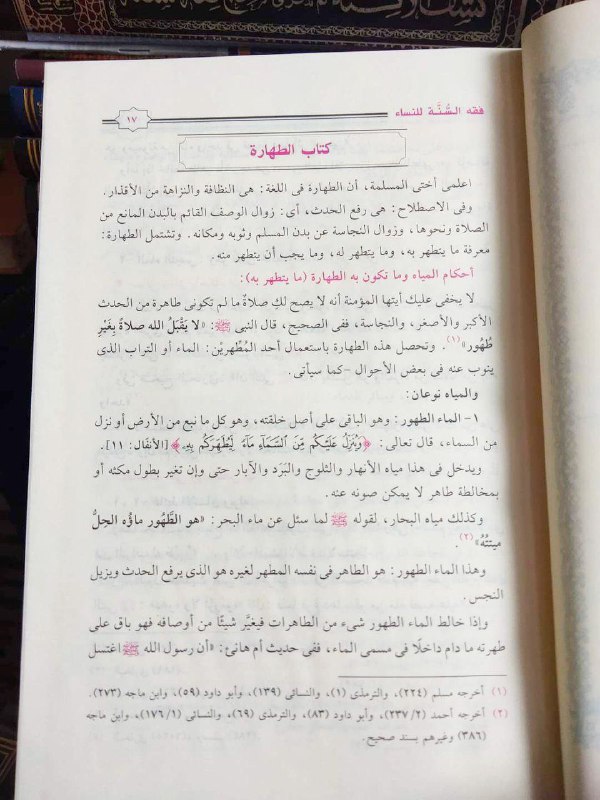 فقه السُّنَّة للنساء
١٧
كتاب الطهارة
اعلمى أختى المسلمة، أن الطهارة فى اللغة: هى النظافة والنزاهة من الأقذار.
وفى الاصطلاح: هى رفع الحدث، أى: زوال الوصف القائم بالبدن المانع من
الصلاة ونحوها، وزوال النجاسة عن بدن المسلم وثوبه ومكانه. وتشتمل الطهارة:
معرفة ما يتطهر به، وما يتطهر له، وما يجب أن يتطهر منه.
أحكام المياه وما تكون به الطهارة (ما يتطهر به):
لا يخفى عليك أيتها المؤمنة أنه لا يصح لكِ صلاةٌ ما لم تكونى طاهرة من الحدث
الأكبر والأصغر، والنجاسة، ففى الصحيح، قال النبى ﷺ: «لا يَقْبَلُ الله صلاةً بِغَيْرِ
طُهُور»(١). وتحصل هذه الطهارة باستعمال أحد المُطَهِّرينْ: الماء أو التراب الذى
ينوب عنه فى بعض الأحوال -كما سيأتى.
والمياه نوعان:
١- الماء الطهور: وهو الباقى على أصل خلقته، وهو كل ما نبع من الأرض أو نزل
من السماء، قال تعالى: ﴿وَيُنَزِّلُ عَلَيْكُم مِّنَ السَّمَاءِ مَاءً لِّيُطَهِّرَكُم بِهِ﴾ [الأنفال: ١١].
ويدخل فى هذا مياه الأنهار والثلوج والبَرَد والآبار حتى وإن تغير بطول مكثه أو
بمخالطة طاهر لا يمكن صونه عنه.
وكذلك مياه البحار، لقوله ﷺ لما سئل عن ماء البحر: «هو الطَّهُور ماؤه الحِلُّ
ميتتُهُ»(٢).
وهذا الماء الطهور: هو الطاهر فى نفسه المطهر لغيره هو الذى يرفع الحدث ويزيل
النجس.
وإذا خالط الماء الطهور شىء من الطاهرات فيغيَّر شيئًا من أوصافه فهو باق على
طهرته ما دام داخلًا فى مسمى الماء، ففى حديث أم هانئ: «أن رسول الله ﷺ اغتسل
(١) أخرجه مسلم (٢٢٤)، والترمذى (١)، والنسائى (١٣٩)، وأبو داود (٥٩)، وابن ماجه (٢٧٣).
(٢) أخرجه أحمد (٢٣٧/٢)، وأبو داود (٨٣)، والترمذى (٦٩)، والنسائى (١٧٦/١)، وابن ماجه
(٣٨٦) وغيرهم بسند صحيح.